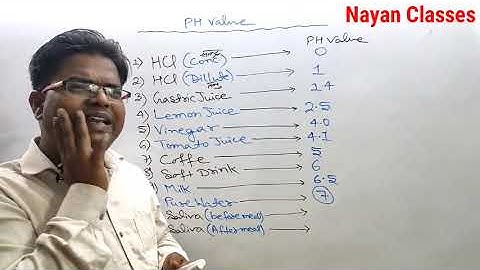 Nayan Classes
PH Value
PH Value
1) HCl (Conc) → 0
2) HCl (Dillute) → 1
3) Gastric Juice → 1.4
4) Lemon Juice → 2.5
5) Vinegar → 4.0
6) Tomato Juice → 4.1
7) Coffe → 5
Soft Drink → 6
Milk → 6.5
Pure Water → 7
Saliva (before meal) →
Saliva (After meal) →